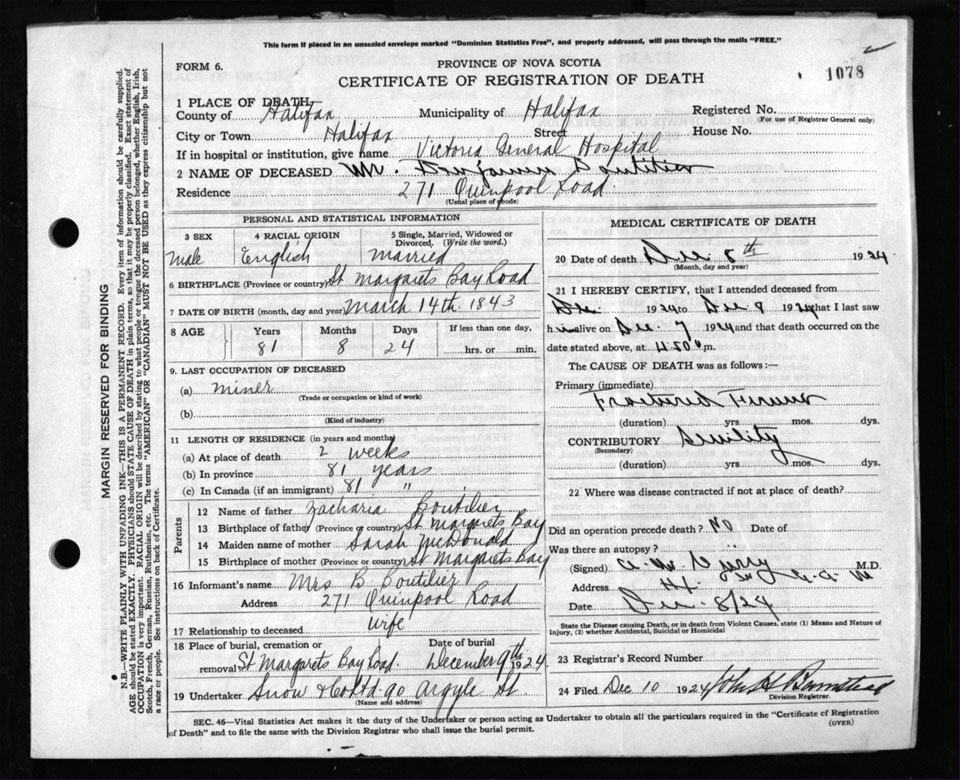 This form if placed in an unsealed envelope marked "Dominion Statistics Free", and properly addressed, will pass through the mails "FREE."
FORM 6.
PROVINCE OF NOVA SCOTIA
CERTIFICATE OF REGISTRATION OF DEATH
1078
1 PLACE OF DEATH
County of Halifax Municipality of Halifax Registered No.
(For use of Registrar General only)
City or Town Halifax Street House No.
If in hospital or institution, give name Victoria General Hospital
2 NAME OF DECEASED Mr. Benjamin Boutilier
Residence 271 Quinpool Road
(Usual place of abode)
PERSONAL AND STATISTICAL INFORMATION
3 SEX 4 RACIAL ORIGIN 5 Single, Married, Widowed or Divorced. (Write the word.)
Male English Married
6 BIRTHPLACE (Province or country) St Margarets Bay Road
7 DATE OF BIRTH (month, day and year) March 14th 1843
8 AGE Years Months Days If less than one day,
81 8 24 hrs. or min.
9. LAST OCCUPATION OF DECEASED
(a) Miner
(Trade or occupation or kind of work)
(b)
(Kind of industry)
11 LENGTH OF RESIDENCE (in years and months)
(a) At place of death 2 weeks
(b) In province 81 years
(c) In Canada (if an immigrant) 81 "
Parents
12 Name of father Zacharia Boutilier
13 Birthplace of father (Province or country) St Margrets Bay
14 Maiden name of mother Sarah McDonald
15 Birthplace of mother (Province or country) St Margrets Bay
16 Informant's name Mrs B Boutilier
Address 271 Quinpool Road
17 Relationship to deceased wife
18 Place of burial, cremation or removal St Margarets Bay Road. Date of burial December 9th 1924
19 Undertaker Snow & Co Ltd 90 Argyle St
(Name and address)
MEDICAL CERTIFICATE OF DEATH
20 Date of death Dec 8th 1924
(Month, day and year)
21 I HEREBY CERTIFY, that I attended deceased from
Dec 1924 to Dec 8 1924 that I last saw
h is alive on Dec. 7 1924 and that death occurred on the
date stated above, at 4 50 m.
The CAUSE OF DEATH was as follows:—
Primary (immediate)
Fractured Femur
(duration) yrs. mos. dys.
CONTRIBUTORY Senility
(Secondary)
(duration) yrs. mos. dys.
22 Where was disease contracted if not at place of death?
Did an operation precede death? No Date of
Was there an autopsy?
(Signed) M.D.
Address
Date Dec. 8/24
State the Disease causing Death, or in death from Violent Causes, state (1) Means and Nature of Injury, (2) whether Accidental, Suicidal or Homicidal
23 Registrar's Record Number
24 Filed Dec 10 1924 John H Barnstead
Division Registrar.
SEC. 46—Vital Statistics Act makes it the duty of the Undertaker or person acting as Undertaker to obtain all the particulars required in the "Certificate of Registration
of Death" and to file the same with the Division Registrar who shall issue the burial permit. (OVER)
MARGIN RESERVED FOR BINDING
N.B.—WRITE PLAINLY WITH UNFADING INK—THIS IS A PERMANENT RECORD. Every item of information should be carefully supplied.
AGE should be stated EXACTLY. PHYSICIANS should STATE CAUSE OF DEATH in plain terms, so that it may be properly classified. Exact statement of
OCCUPATION is very important. RACIAL ORIGIN will be described by stating to what people or tongue the deceased person belonged, whether English, Irish,
Scotch, French, German, Russian, Ruthenian, etc. The terms "AMERICAN" or "CANADIAN" MUST NOT BE USED as they express citizenship but not
a race or people. See instructions on back of Certificate.